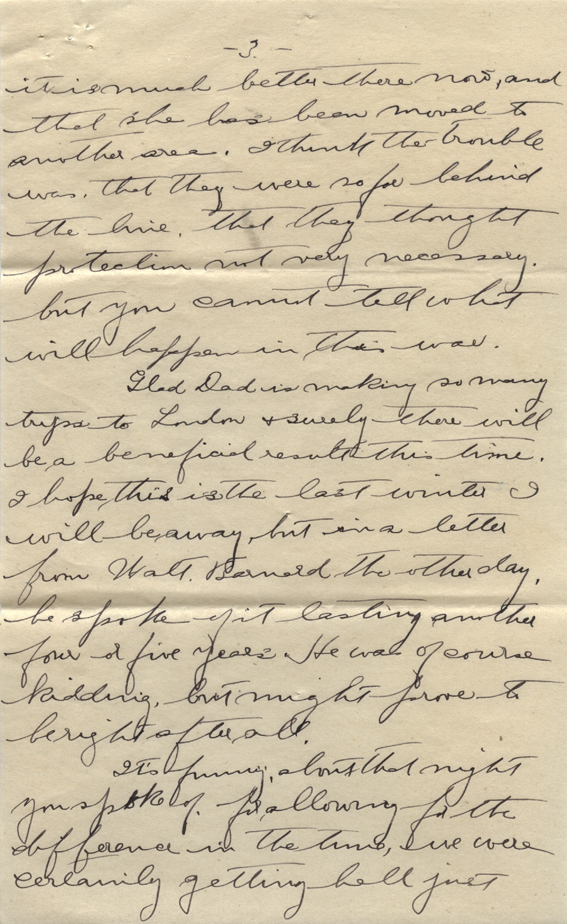 -3.-
it is much better there now, and
that she has been moved to
another area. I think the trouble
was, that they were so far behind
the line, that they thought
protection not very necessary.
but you cannot tell what
will happen in this war.
Glad Dad is making so many
trips to London & surely there will
be a beneficial result this time.
I hope this is the last winter I
will be away, but in a letter
from Walt. Barnard the other day,
he spoke of it lasting another
four or five years. He was of course
kidding, but might prove to
be right after all.
It's funny, about that night
you spoke of. for, allowing for the
difference in the time, we were
certainly getting hell just